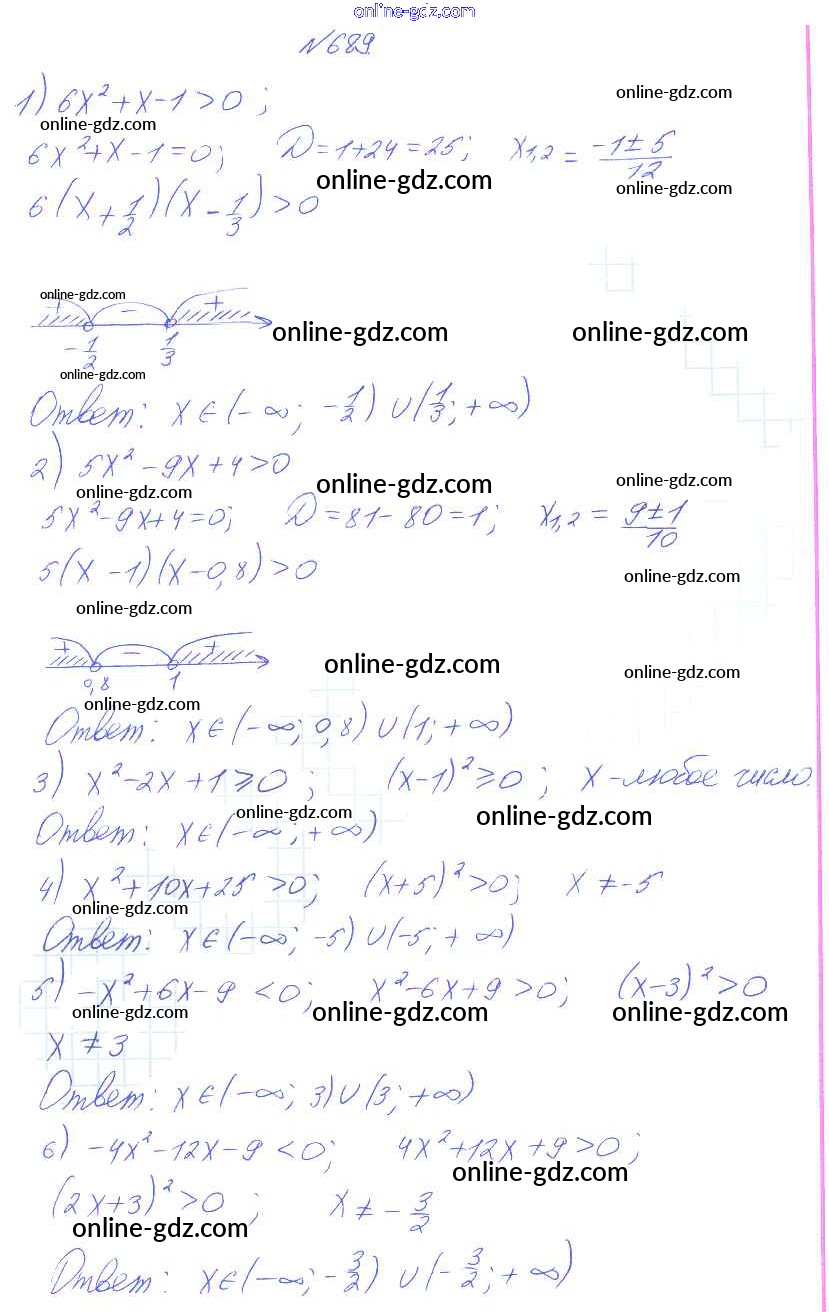 online-gdz.com
N689
1) 6x²+x-1>0 ;
online-gdz.com
online-gdz.com
6x²+x-1=0; D=1+24=25; x₁,₂ = (-1±5)/12
online-gdz.com online-gdz.com
6(x+1/2)(x-1/3)>0
online-gdz.com
+ - +
online-gdz.com online-gdz.com
-1/2 1/3
online-gdz.com
Ответ: x∈(-∞; -1/2) ∪(1/3; +∞)
2) 5x²-9x+4>0
online-gdz.com online-gdz.com online-gdz.com
5x²-9x+4=0; D=81-80=1; x₁,₂ = (9±1)/10
5(x-1)(x-0,8)>0
online-gdz.com
online-gdz.com
+ - +
online-gdz.com online-gdz.com
0,8 1
online-gdz.com
Ответ: x∈(-∞; 0,8) ∪(1; +∞)
3) x²-2x+1≥0 ; (x-1)²≥0 ; x-любое число.
online-gdz.com online-gdz.com
Ответ: x∈(-∞; +∞)
4) x²+10x+25>0; (x+5)²>0; x≠-5
online-gdz.com
Ответ: x∈(-∞; -5) ∪(-5; +∞)
5) -x²+6x-9<0; x²-6x+9>0; (x-3)²>0
online-gdz.com online-gdz.com online-gdz.com
x≠3
Ответ: x∈(-∞; 3)∪(3; +∞)
6) -4x²-12x-9<0; 4x²+12x+9>0;
online-gdz.com
(2x+3)²>0 ; x≠-3/2
online-gdz.com
Ответ: x∈(-∞; -3/2) ∪(-3/2; +∞)